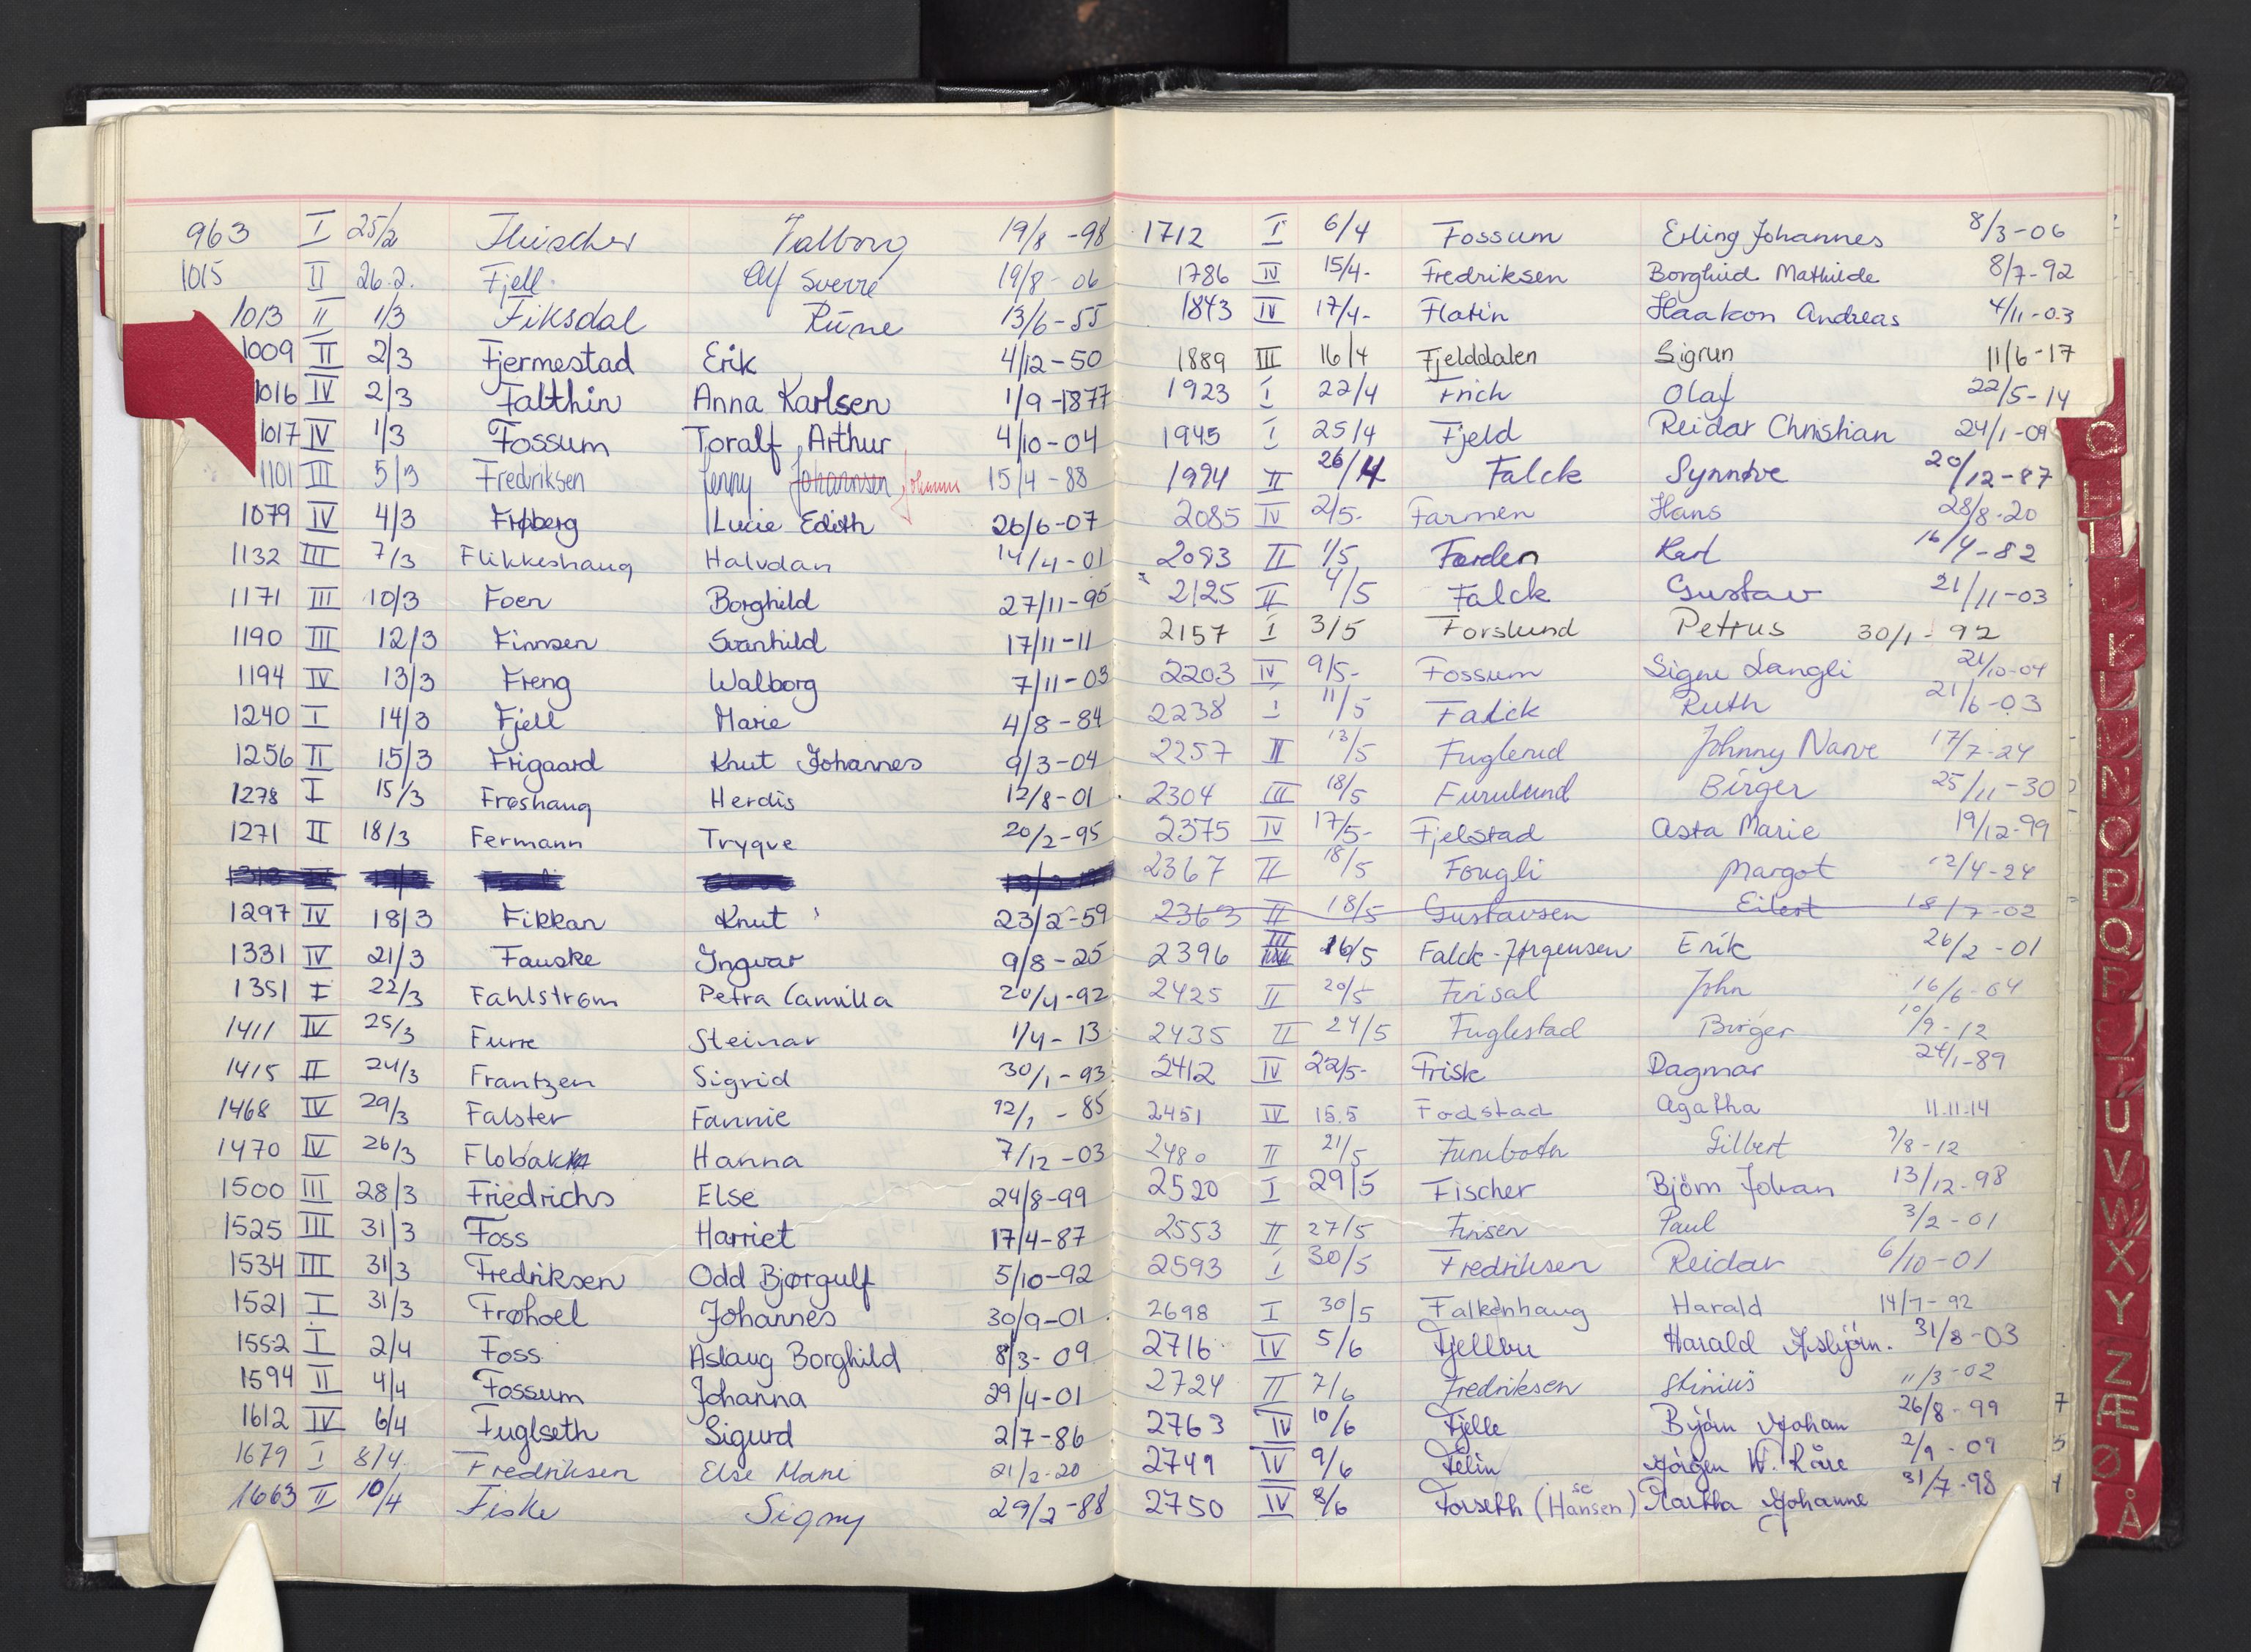 963 I 25/2 Fleischer Valborg 19/8 -98
1015 II 26.2. Fjell Alf Sverre 19/8 - 06
1013 II 1/3 Fiksdal Rune 13/6-55
1009 II 2/3 Fjermestad Erik 4/12-50
1016 IV 2/3 Falthin Anna Karlsen 1/9-1877
1017 IV 1/3 Fossum Toralf Arthur 4/10-04
1101 III 5/3 Fredriksen Jenny Johannsen Johanne 15/4-88
1079 IV 4/3 Frøberg Lucie Edith 26/6-07
1132 III 7/3 Flikkeshaug Halvdan 14/4-01
1171 III 10/3 Foen Borghild 27/11-95
1190 III 12/3 Finnsen Svanhild 17/11-11
1194 IV 13/3 Freng Walborg 7/11-03
1240 I 14/3 Fjell Marie 4/8-84
1256 II 15/3 Frigaard Knut Johannes 9/3-04
1278 I 15/3 Frøshaug Herdis 12/8-01
1271 II 18/3 Fermann Trygve 20/2-95
1297 IV 18/3 Fikkan Knut 23/2-59
1331 IV 21/3 Fauske Ingvar 9/8-25
1351 I 22/3 Fahlstrøm Petra Camilla 20/4-92
1411 IV 25/3 Furre Steinar 1/4-13
1415 II 24/3 Frantzen Sigrid 30/1-93
1468 IV 29/3 Falster Fannie 12/1-85
1470 IV 26/3 Flobakk Hanna 7/12-03
1500 III 28/3 Friedrichs Else 24/8-99
1525 III 31/3 Foss Harriet 17/4-87
1534 III 31/3 Fredriksen Odd Bjørgulf 5/10-92
1521 I 31/3 Frøhoel Johannes 30/9-01
1552 I 2/4 Foss Aslaug Borghild 8/3-09
1594 II 4/4 Fossum Johanna 29/4-01
1612 IV 6/4 Fuglseth Sigurd 2/7-86
1679 I 8/4 Fredriksen Else Marie 21/2-20
1663 II 10/4 Fiske Signy 29/2-88
1712 I 6/4 Fossum Erling Johannes 8/3-06
1786 IV 15/4- Fredriksen Borghild Mathilde 8/7-92
1843 IV 17/4- Flatin Haakon Andreas 4/11-03
1889 III 16/4 Fjelddalen Sigrun 11/6-17
1923 I 22/4 Frich Olaf 22/5-14
1945 I 25/4 Fjeld Reidar Christian 24/1-09
1994 II 26/4 Falck Synnøve 20/12-87
2085 IV 2/5- Farmen Hans 28/8-20
2093 II 1/5 Førden Karl 16/4-82
2125 II 4/5 Falck Gustav 21/11-03
2157 I 3/5 Forslund Petrus 30/1-92
2203 IV 9/5- Fossum Signe Langli 21/10-04
2238 I 11/5 Falck Ruth 21/6-03
2257 II 13/5 Fuglerud Johnny Narve 17/7-24
2304 III 18/5 Furulund Birger 25/11-30
2375 IV 17/5- Fjelstad Asta Marie 19/12-99
2367 II 18/5 Fougli Margot 12/4-24
2363 II 18/5 Gustavsen Eilert 18/7-02
2396 III 16/5 Falck-Jørgensen Erik 26/2-01
2425 II 20/5 John 16/6-04
2435 II 24/5 Fuglestad Birger 10/9-12
2412 IV 22/5- Frisk Dagmar 24/1-89
2451 IV 15.5 Fodstad Agatha 11.11.14
2480 II 21/5 Gilbert 7/8-12
2520 I 29/5 Fischer Bjørn Johan 13/12-98
2553 II 27/5 Finsen Paul 3/2-01
2593 I 30/5 Fredriksen Reidar 6/10-01
2698 I 30/5 Falkenhaug Harald 14/7-92
2716 IV 5/6 Fjellbu Harald Asbjørn. 31/8-03
2724 II 7/6 Fredriksen 11/3-02
2763 IV 10/6 Fjelle Bjørn Johan 26/8-99
2749 IV 9/6 Felin Jørgen W. Kåre 2/9-09
2750 IV 8/6 Forseth (se Hansen) Martha Johanne 31/7-98
G
K
N
O
P
Q
T
U
V
W
X
Y
Z
Æ
Ø
Å